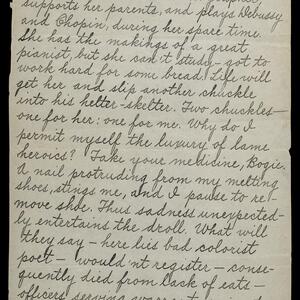 supports her parents, and plays Debussy
and Chopin, during her spare time.
She has the makings of a great
pianist, but she can't study - got to
work hard for some bread. Life will
get her and slip another chuckle
into his helter-skelter. Two chuckles—
one for her: one for me. Why do I
permit myself the luxury of lame
heroics? Take your medicine, Bogie.
A nail protruding from my melting
shoes, stings me, and I pause to re-
move shoe. Thus sadness unexpected-
ly entertains the droll. What will
they say - here lies bad colorist
poet - would'nt register - conse-
quently died from lack of eats -
officers serving